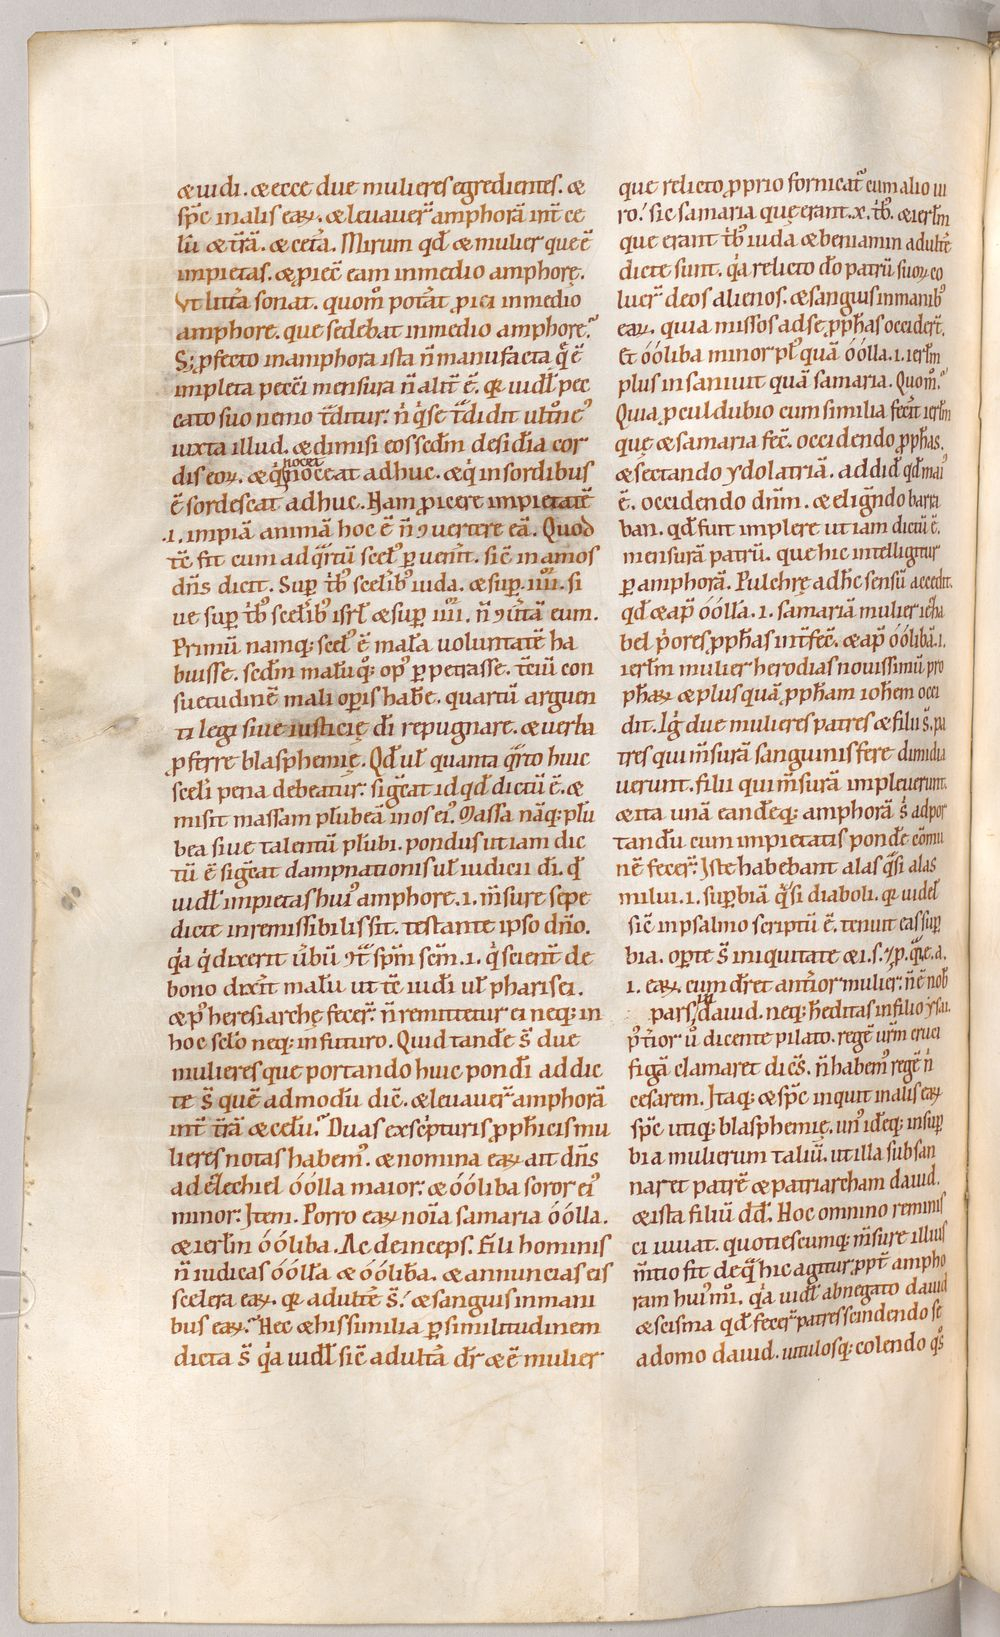 & uidi. & ecce due mulieres egredientes. &
sp̄c inalis eaꝝ. & leuauer̄ amphorā int̄ ce
lū & t̄rā. & cet̄a. Mirum qđ & mulier que ē
impietas. & ꝓiec̄ eam inmedio amphorę.
Vt litt̄a sonat. quom̄ pot̄at ꝓici inmedio
amphore. que sedebat inmedio amphore?
S; ꝓfecto inamphora ista n̄ manufacta q̄ ē
impleta peccī mensura n̄ alit̄ ē. qꝛ uidł pec
cato suo nemo t̄ditur: n̄ q̇ se t̄didit ultōne
iuxta illud. & dimisi eos scđm desidīa cor
dis eoꝝ. & q̇ nocet noceat adhuc. & q̇ insordibus
ē sordescat adhuc. Nam ꝓicere impietatē
.i. impiā animā hoc ē n̄ ꝯuertere eā. Quod
tc̄ fit cum ad q̄rtū scel' ꝑ uenīt. sic̄ in amos
dn̄s dicit. Suꝑ tb' sceīb' iuda. & suꝑ iiii. si
ue suꝑ tb' sceīb' isrł & suꝑ iiii. n̄ ꝯūtā eum.
Primū namq; scel' ē mała uoluntatē ha
buisse. scđm malūq; op' ꝑ petrasse. t̄ciū con
suetudinē mali opis hab̄e. quartū arguen
ti legi siue iusticię dī repugnare. & uerba
ꝓferre blasphemię. Qđ uł quanta q̄rto huic
scełi pena debeatur: siḡeat id qđ dictū ē. &
misit massam plūbeā in os ei'. Massa nāq; plū
bea siue talentū plūbi. pondus ut iam dic
tū ē siḡeat dampnationis uł iudicii dī. qđ
uidł impietas hui' amphore .i. m̄sure sepe
dicte inremissibilis sit. testante ipso dn̄o.
q̇a q̇ dixerit ūbū ꝯt̄ sp̄m sc̄m .i. q̇ scient̄ de
bono dix̄it malū ut tc̄ iudī uł pharisei.
& p' heresiarchę fecer̄. n̄ remittetur ei neq; in
hoc scło neq; in futuro. Quid tand̄e s̄ due
mulieres que portando huic pondī addic
te s̄ quē admodū dic̄. & leuauer̄ amphorā
int̄ t̄rā & celū? Duas ex sc̄pturis ꝓph̄icis mu
lieres notas habem'. & nomina eaꝝ ait dn̄s
ad ēzechiel óólla maior: & óóliba soror ei'
minor: Item. Porro eaꝝ noīa samaria óólla.
& ierłm óóliba. Ac deinceps. Fili hominis
n̄ iudicas óółła & óólība. & annuncias eis
scelera eaꝝ. qꝛ adult̄e s̄: & sanguis in mani
bus eaꝝ? Hec & his similia ꝑ similitudinem
dicta s̄ q̇a uidł sic̄ adult̄a dr̄ & ē mulier
que relicto ꝓprio fornicat̄ cum alio ui
ro: sic samaria quę erant .x. tb'. & ierłm
que erant tb' iuda & beniamin adult̄e
dicte sunt. q̇a relicto dō patrū suoꝝ co
luer̄ deos alienos. & sanguis in manib'
eaꝝ. quia missos ad se ꝓph̄as occider̄t.
Et óóliba minor pl' quā óólla .i. ierłm
plus insaniuit quā samaria. Quom̄?
Quia ꝓcul dubio cum similia fec̄it ierłm
quę & samaria fec̄. occidendo ꝓph̄as.
& sectando ydolatriā. addiđ qđ mai'
ē. occidendo dn̄m. & eliḡndo barra
ban. qđ fuit implere ut iam dictū ē.
mensurā patrū. que hic intelligitur
ꝑ amphorā. Pulchrę adh̄c sensū accedit.
qđ & ap̄ óólla .i. samariā mulier ieza
bel p̄ores ꝓph̄as int̄fec̄. & ap̄ óólibā .i.
ierłm mulier herodias nouissimū pro
ph̄aꝝ & plus quā ꝓph̄am ioh̄em occi
dit. Iḡ due mulieres patres & filii s̄. pa
tres qui m̄surā sanguinis fere dimidia
uerunt. filii qui m̄surā impleuerunt.
& ita unā eand̄eq; amphorā s̄ adpor
tandū cum impietatis pond̄e cōmu
nē fecer̄. Iste habebant alas q̄si alas
milui .i. suꝑbiā q̄si diaboli. qꝛ uideł
sic̄ in psalmo scriptū ē. tenuit eas suꝑ
bia. opte s̄ iniquitate & i. s.
.i. eaꝝ. cum dr̄et ant̄ior mulier: n̄ ē nob̄
pars in dauid. neq; h̄editas in filio ysai.
p't̄ior ū dicente pilato. regē ūrm cruci
figā clamaret dicēs. n̄ habem' regē n̄
cesarem. Itaq; & sp̄c inquit inalis eaꝝ
sp̄c utiq; blasphemię. un' idēq; in suꝑ
bia mulierum taliū. ut illa subsan
naret patrē & patriarcham dauid.
& ista filiū dđ. Hoc omnino reminis
ci iuuat. quotiescumq; m̄sure illius
m̄tio fit de q̄ hic agitur ꝓpt̄ ampho
ram hui'm̄i. q̇a uidł abnegato dauid
& scisma qđ fecer̄ patres scindendo se
a domo dauid. uitulosq; colendo q̊s